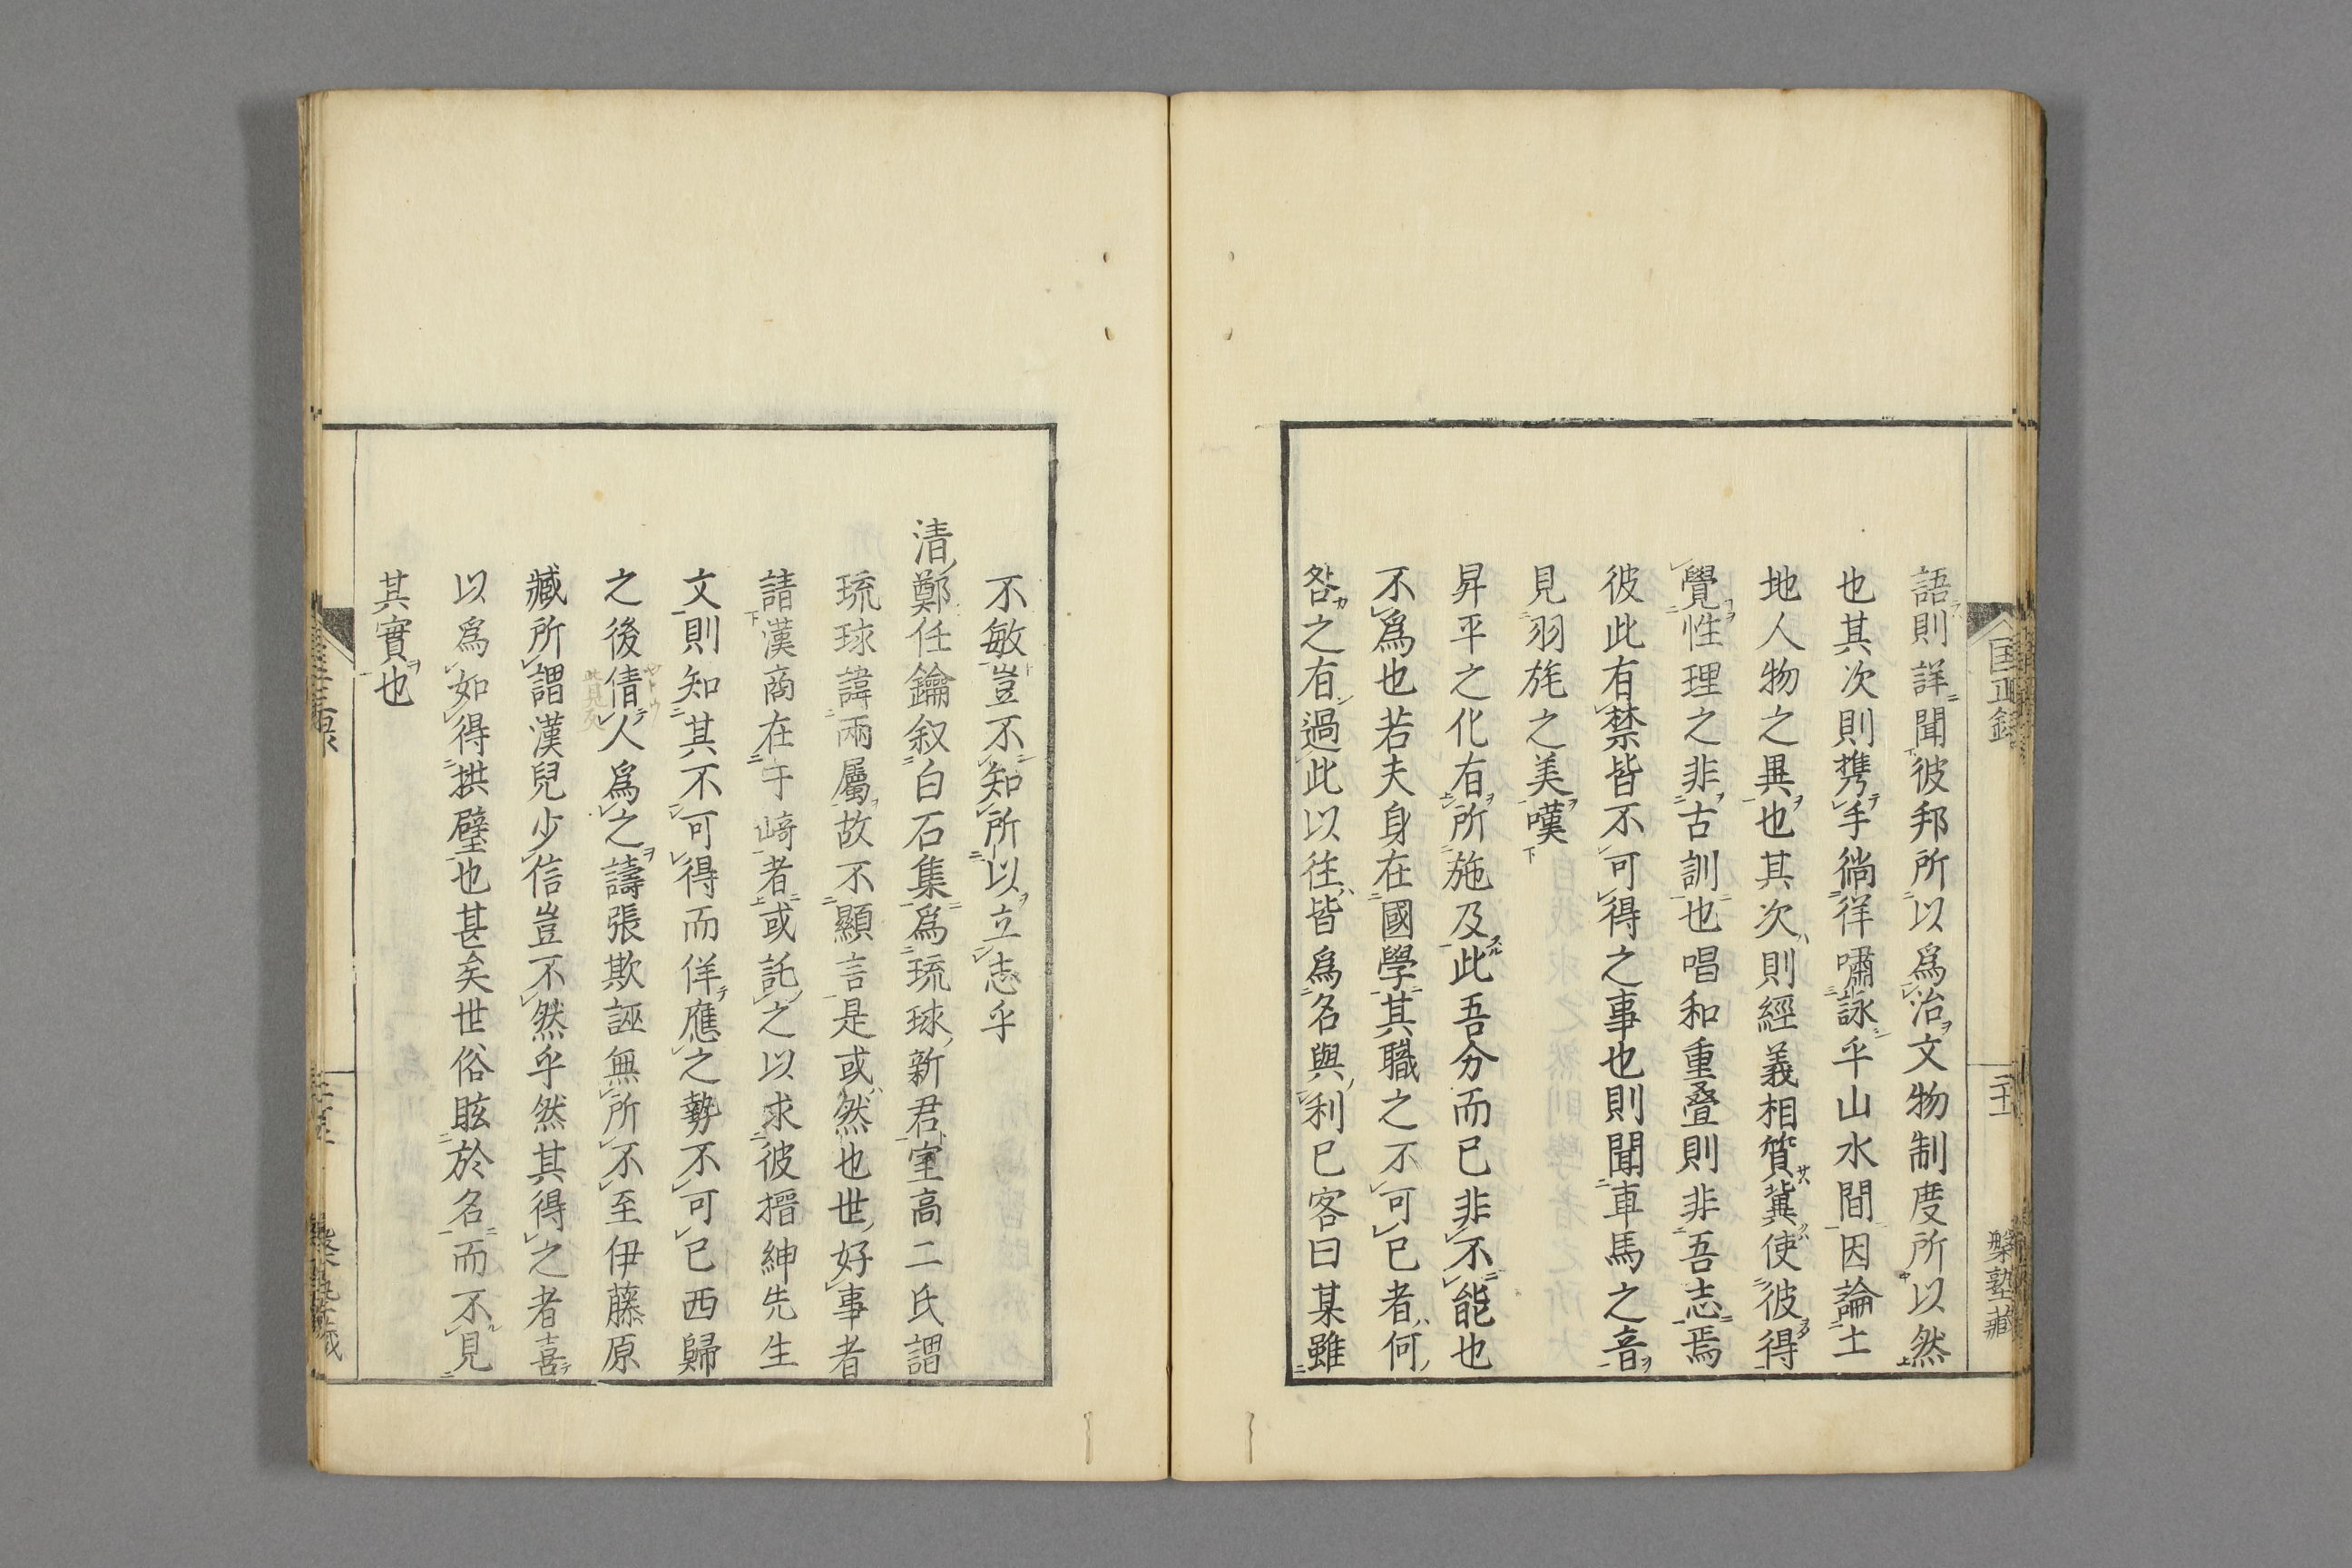 語則詳聞彼邦所以爲治文物制度所以然
也其次則携手徜徉嘯詠乎山水間因論土
地人物之異也其次則經義相質冀使彼得
覺性理之非古訓也唱和重疊則非吾志焉
彼此有禁皆不可得之事也則聞車馬之音
見羽旄之美嘆
昇平之化有所施及此吾分而已非不能也
不爲也若夫身在國學其職之不可已者何
咎之有過此以往皆爲名與利已客曰某雖
不敏豈不知所以立志乎
清鄭任鑰叙白石集爲琉球新君室高二氏謂
琉球諱兩屬故不顯言是或然也世好事者
請漢商在于崎者或託之以求彼搢紳先生
文則知其不可得而佯應之勢不可已西歸
之後倩人爲之譸張欺誣無所不至伊藤原
臧所謂漢兒少信豈不然乎然其得之者喜
以爲如得拱璧也甚矣世俗眩於名而不見
其實也
二十一
槃塾藏